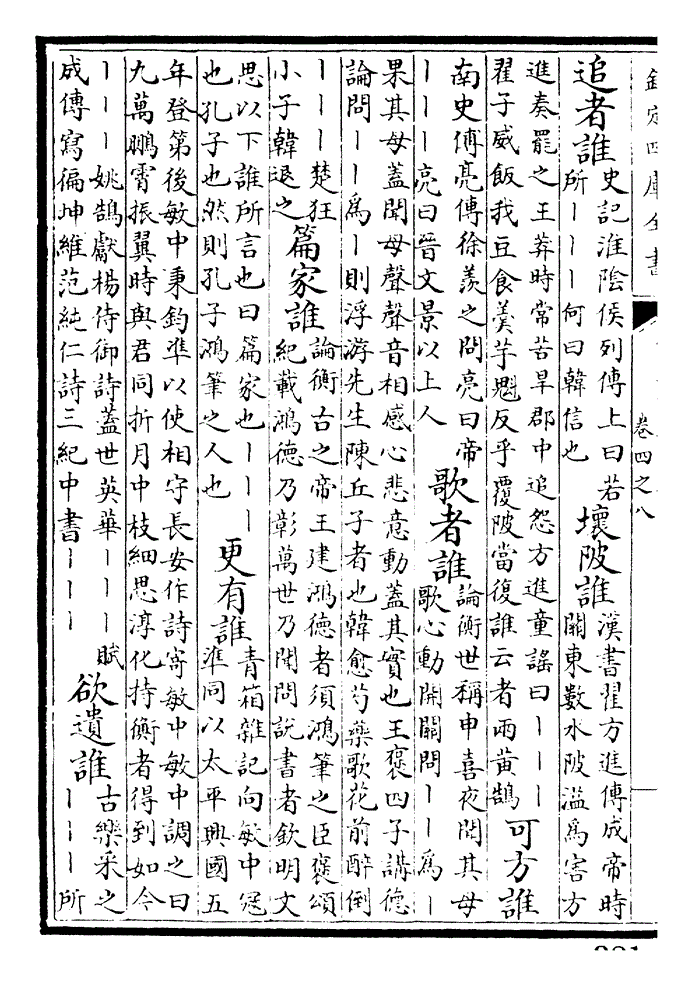 欽定四庫全書
卷四之八
追者誰
史記淮陰侯列傳上曰若
所｜｜｜何曰韓信也
壞陂誰
漢書翟方進傳成帝時
關東數水陂溢爲害方
進奏罷之王莽時常苦旱郡中追怨方進童謠曰｜｜｜
翟子威飯我豆食羹芋魁反乎覆陂當復誰云者兩黃鵠
可方誰
南史傅亮傳徐羨之問亮曰帝
｜｜｜亮曰晉文景以上人
歌者誰
論衡世稱申喜夜聞其母
歌心動開關問｜｜爲｜
果其母蓋聞母聲聲音相感心悲意動蓋其實也王褒四子講德
論問｜｜爲｜則浮游先生陳丘子者也韓愈芍藥歌花前醉倒
｜｜｜楚狂
小子韓退之
篇家誰
論衡古之帝王建鴻德者須鴻筆之臣褒頌
紀載鴻德乃彰萬世乃聞問說書者欽明文
思以下誰所言也曰篇家也｜｜｜
也孔子也然則孔子鴻筆之人也
更有誰
青箱雜記向敏中冦
準同以太平興國五
年登第後敏中秉鈞準以使相守長安作詩寄敏中敏中調之曰
九萬鵬霄振翼時與君同折月中枝細思淳化持衡者得到如今
｜｜｜姚鵠獻楊侍御詩蓋世英華｜｜｜賦
成傳寫徧坤維范純仁詩三紀中書｜｜｜
欲遺誰
古樂采之
｜｜｜所